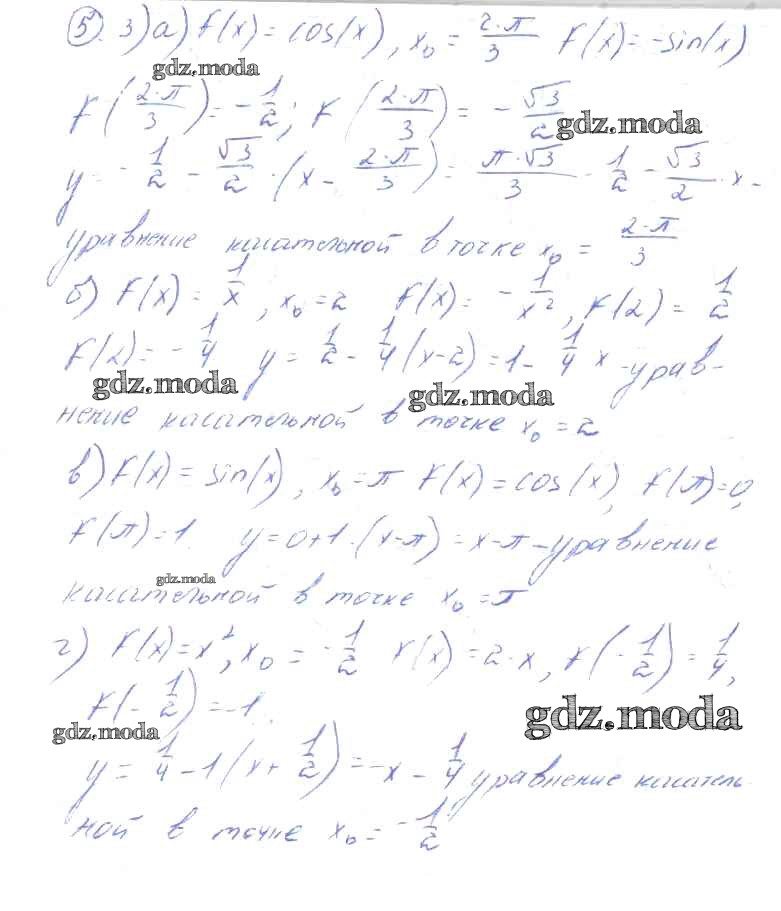 5. 3) а) F(x) = cos(x), x₀ = 2·π/3 F(x) = -sin(x)
gdz.moda
F(2·π/3) = -1/2; F(2·π/3) = -√3/2
gdz.moda
y = -1/2 - √3/2 · (x - 2·π/3) = π·√3/3 - 1/2 - √3/2 · x -
уравнение касательной в точке x₀ = 2·π/3
б) F(x) = 1/x, x₀ = 2 F(x) = -1/x², F(2) = 1/2
F(2) = -1/4 y = 1/2 - 1/4 (x-2) = 1 - 1/4 x - урав-
gdz.moda gdz.moda
нение касательной в точке x₀ = 2
в) F(x) = sin(x), x₀ = π F(x) = cos(x), F(π) = 0,
F(π) = 1. y = 0+1·(x-π) = x-π - уравнение
gdz.moda
касательной в точке x₀ = π
г) F(x) = x², x₀ = -1/2 F(x) = 2·x, F(-1/2) = 1/4,
F(-1/2) = -1.
gdz.moda gdz.moda
y = 1/4 - 1(x + 1/2) = -x - 1/4 уравнение касатель-
ной в точке x₀ = -1/2